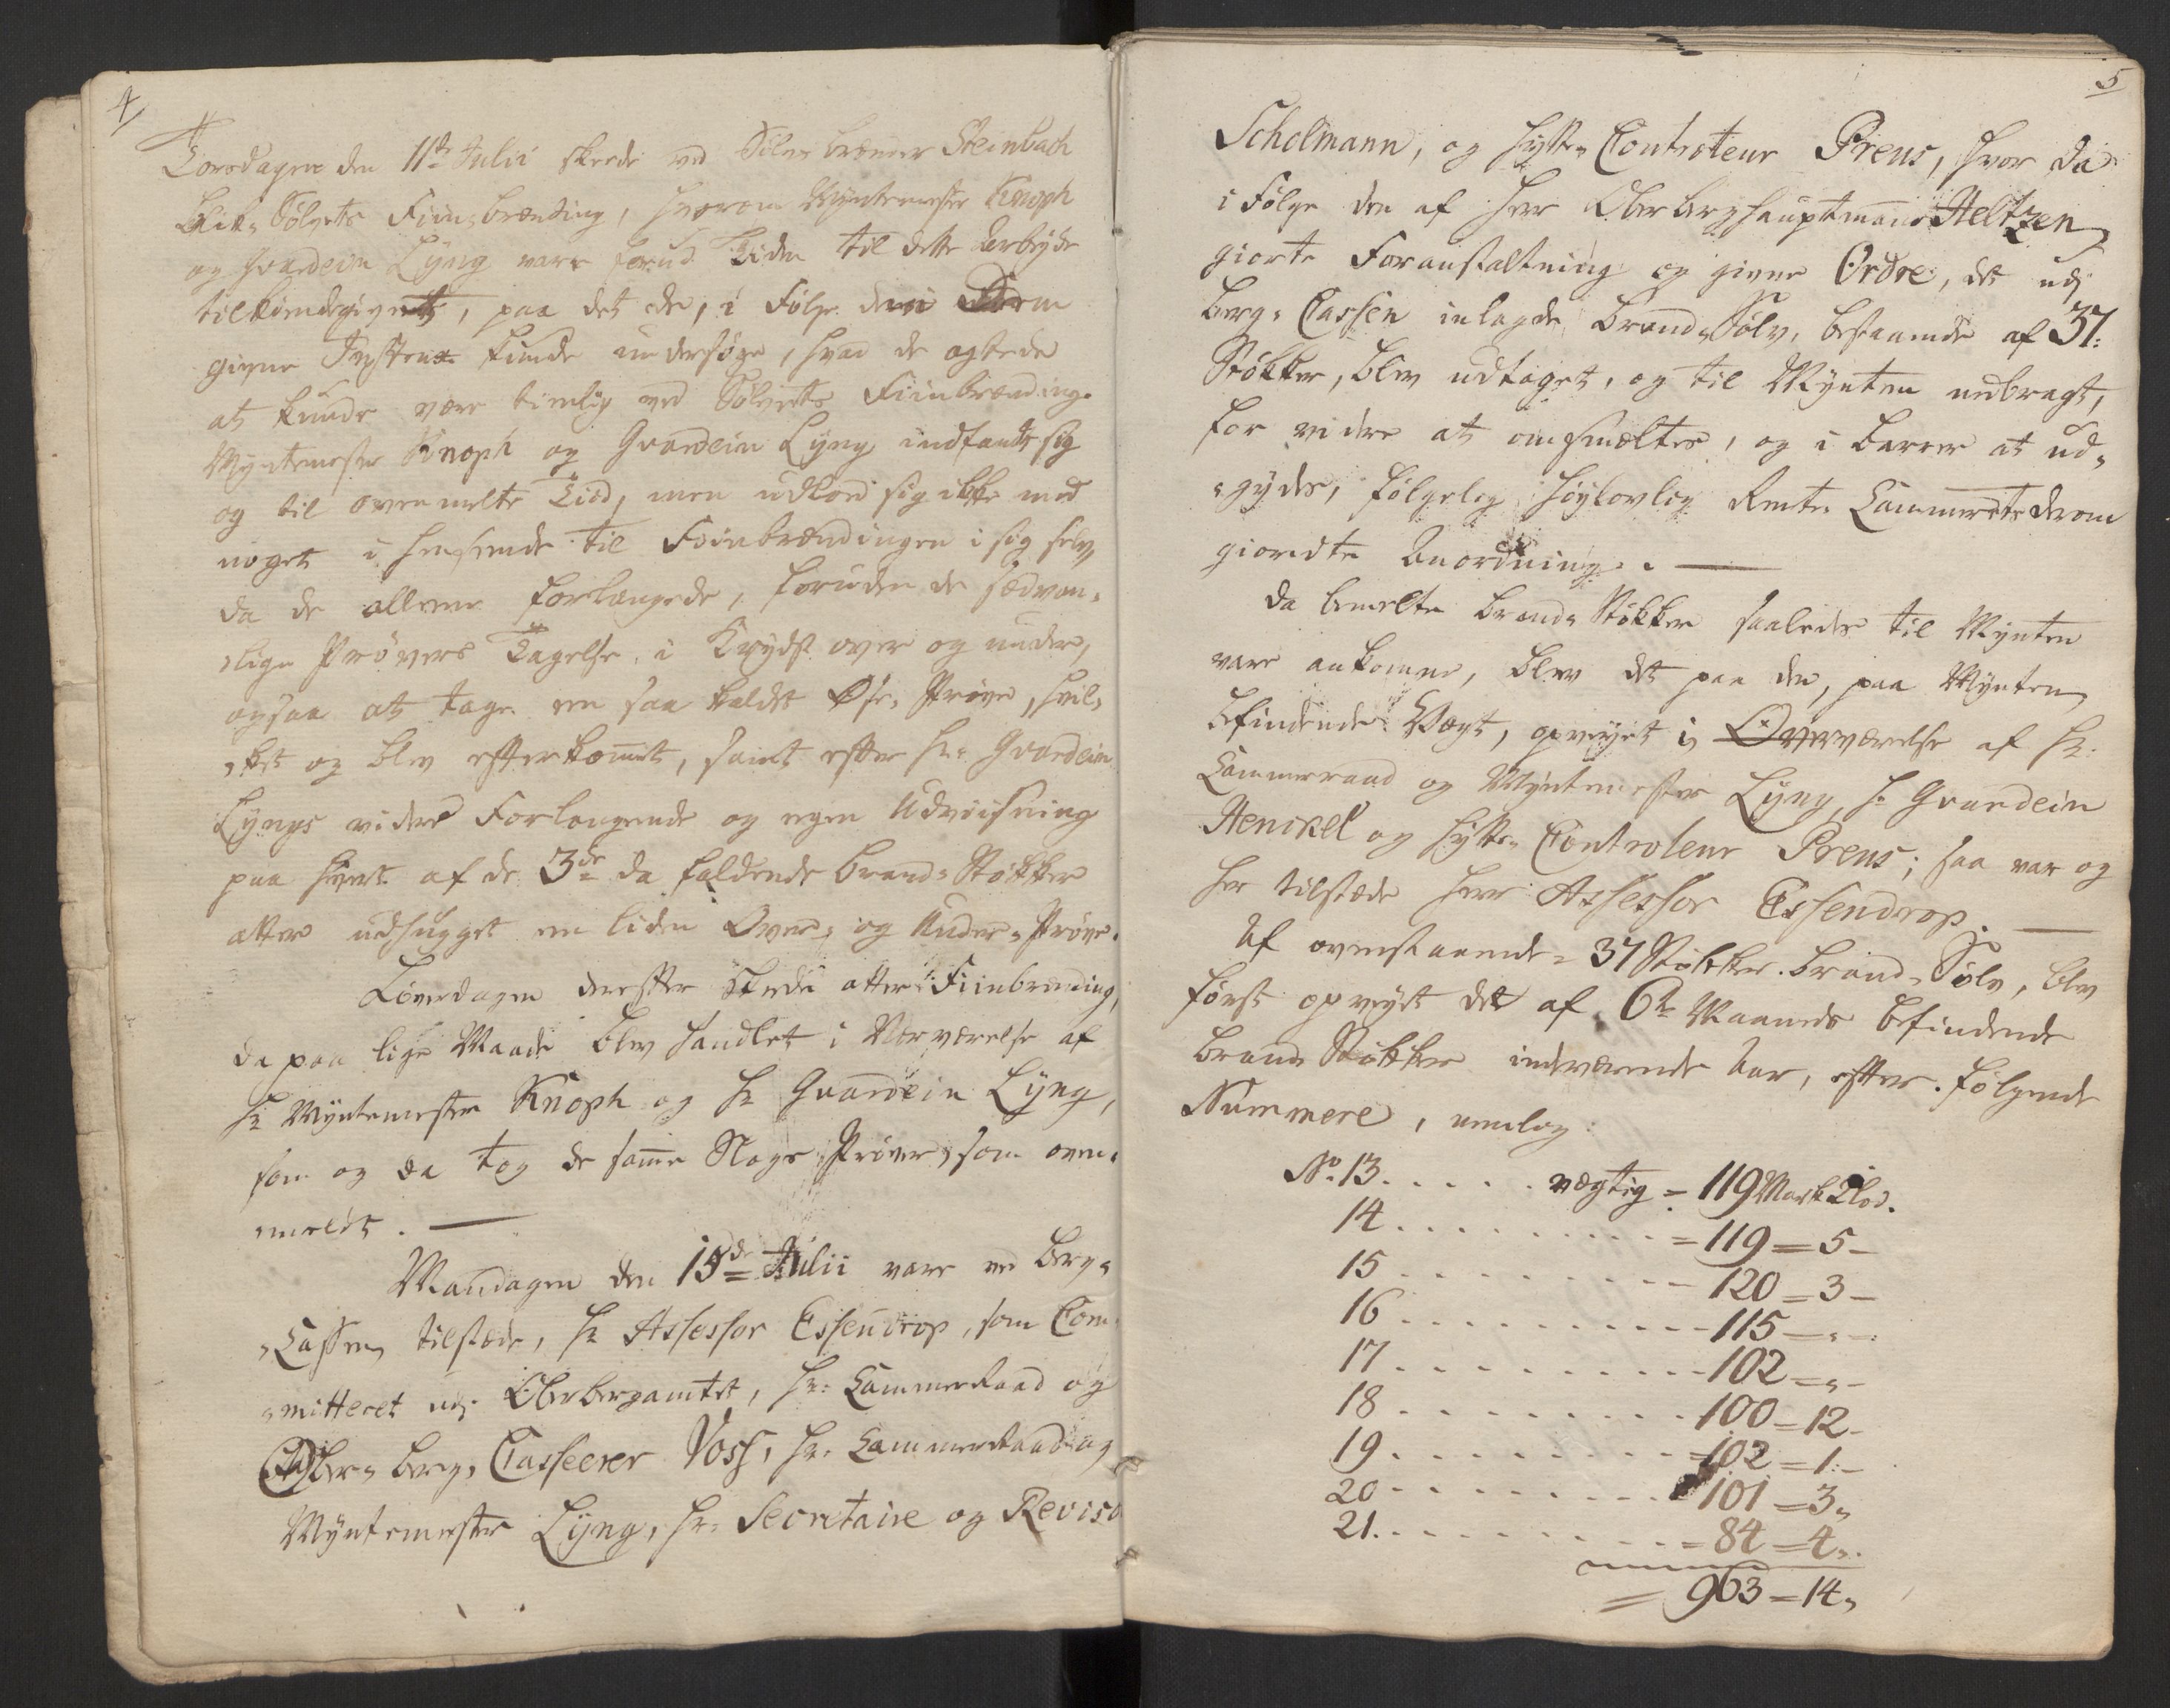 4
Torsdagen den 11te Julii skeede ved Sølvbrænner Steinbach
Blik-Sølvets Fiin-brænding, hvorom Myntemester Knoph
og Guardein Lyng vare forud Tiden til dette Arbeyde
tilkiendegivet, paa det de, i Følge den dem
givne kunde undersøge, hvad de agtede
at kunde være tienlig ved Sølvets Fiinbrænding.
Myntemester Knoph og Guardein Lyng indfandt sig
og til ovenmelte Tiid, men udlod sig ikke med
noget i Henseende til Fiinbrændingen i sig selv,
da de alleene forlangede, foruden de sædvan-
-lige Prøvers Tagelse, i Krydst over og under,
ogsaa at tage en saa kaldet Øse-Prøve, hvil-
-ket og blev efterkommet, samt efter Hr. Guardein
Lyngs videre Forlangende og egen Udviisning
paa hvert af de 3de da faldende Brand-Støkker
atter udhugget en liden Over- og Under-Prøve.
Løverdagen derefter skeede atter Fiinbrænding,
da paa lige Maade blev handlet i Nærværelse af
Hr Myntemester Knoph og Hr Guardein Lyng,
som og da tog de samme Slags Prøver, som oven-
-meldt.
Mandagen den 15de Julii vare ved Berg-
-Cassen tilstæde, Hr Assessor Essendrop, som Com-
-mitteret udj Oberbergamtet, Hr. Cammerraad og
Ober-Berg-Casseerer Voss, Hr. Cammerraad og
Myntemester Lyng, Hr. Secretaire og Reviso
5
Scholmann, og Hytte-Controleur Preus, hvor da
i Følge den af Herr Oberberghauptmand Heltzen
giorte Foranstaltning og givne Ordre, det udj
Berg-Cassen inlagde Brand-Sølv, bestaaende af 37.
Støkker, blev udtaget, og til Mynten nedbragt,
for videre at omsmæltes, og i Barrer at ud-
-gydes, følgelig Høylovlig Rente-Cammerets derom
giordte Anordning.
Da bemelte Brand-Støkker saaledes til Mynten
vare ankomne, blev det paa den, paa Mynten
befindende Vægt, opveyet i Overværelse af Hr.
Cammerraad og Myntemester Lyng, Hr Guardein
Henckel og Hytte-Controleur Preus; saa var og
her tilstæde Herr Assessor Essendrop.
Af ovenstaaende 37 Støkker Brand-Sølv, blev
først opveyet det af 6te Maaneds befindende
Brand-Støkker indeværende Aar, efter følgende
Nummere, nemlig:
No. 13 . . . . . vægtig = 119 Mark 2 Lod.
14 . . . . . . . . = 119 = 5 -
15 . . . . . . . . - 120 = 3 -
16 . . . . . . . . - 115 - " -
17 . . . . . . . . - 102 = " -
18 . . . . . . . . - 100 = 12 -
19 . . . . . . . . - 102 = 1 -
20 . . . . . . . . 101 = 3 "
21 . . . . . . . . = 84 = 4 "
= 963 = 14 "